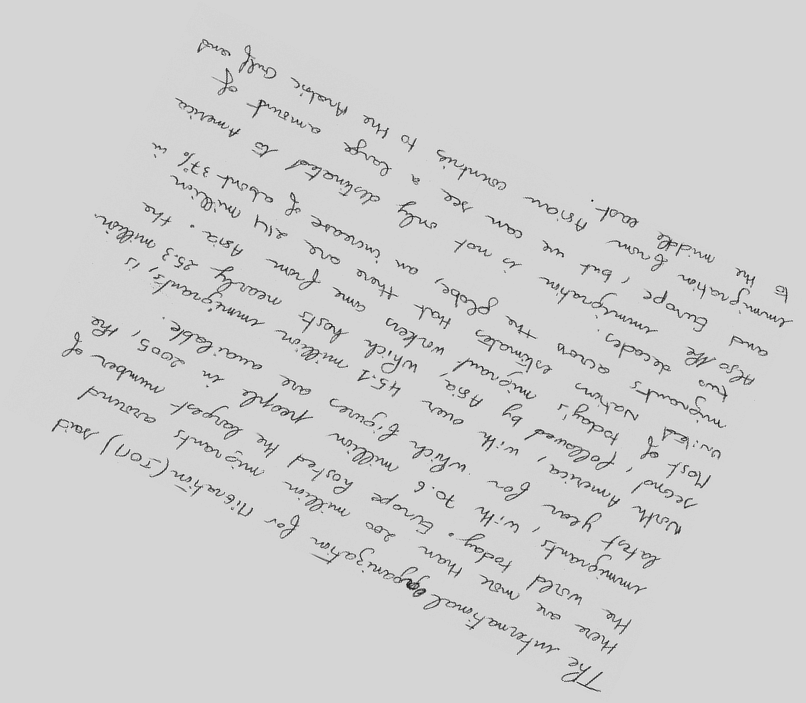 The international Organization for Migration (IOM) said
there are more than 200 million migrants around
the world today. Europe hosted the largest number of
immigrants, with 70.6 million people in 2005, the
latest year for which figures are available.
North America, with over 45.1 million immigrants, is
second, followed by Asia, which hosts nearly 25.3 million.
Most of today's migrant workers come from Asia. the
United Nations estimates that there are 214 million
migrants across the globe, an increase of about 37% in
two decades.
Also the immigration is not only destinated to America
and Europe, but we can see a large amount of
immigration from Asian countries to the Arabic Gulf and
to the middle east.